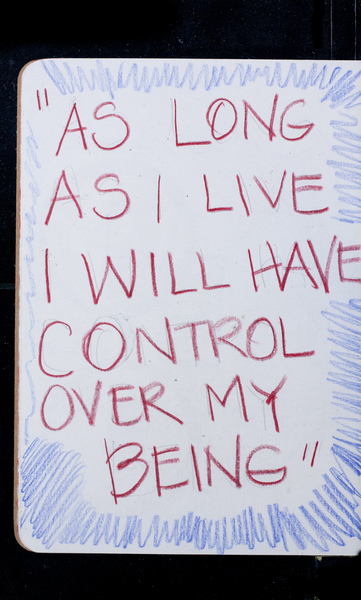 "AS LONG
AS I LIVE
I WILL HAVE
CONTROL
OVER MY
BEING"